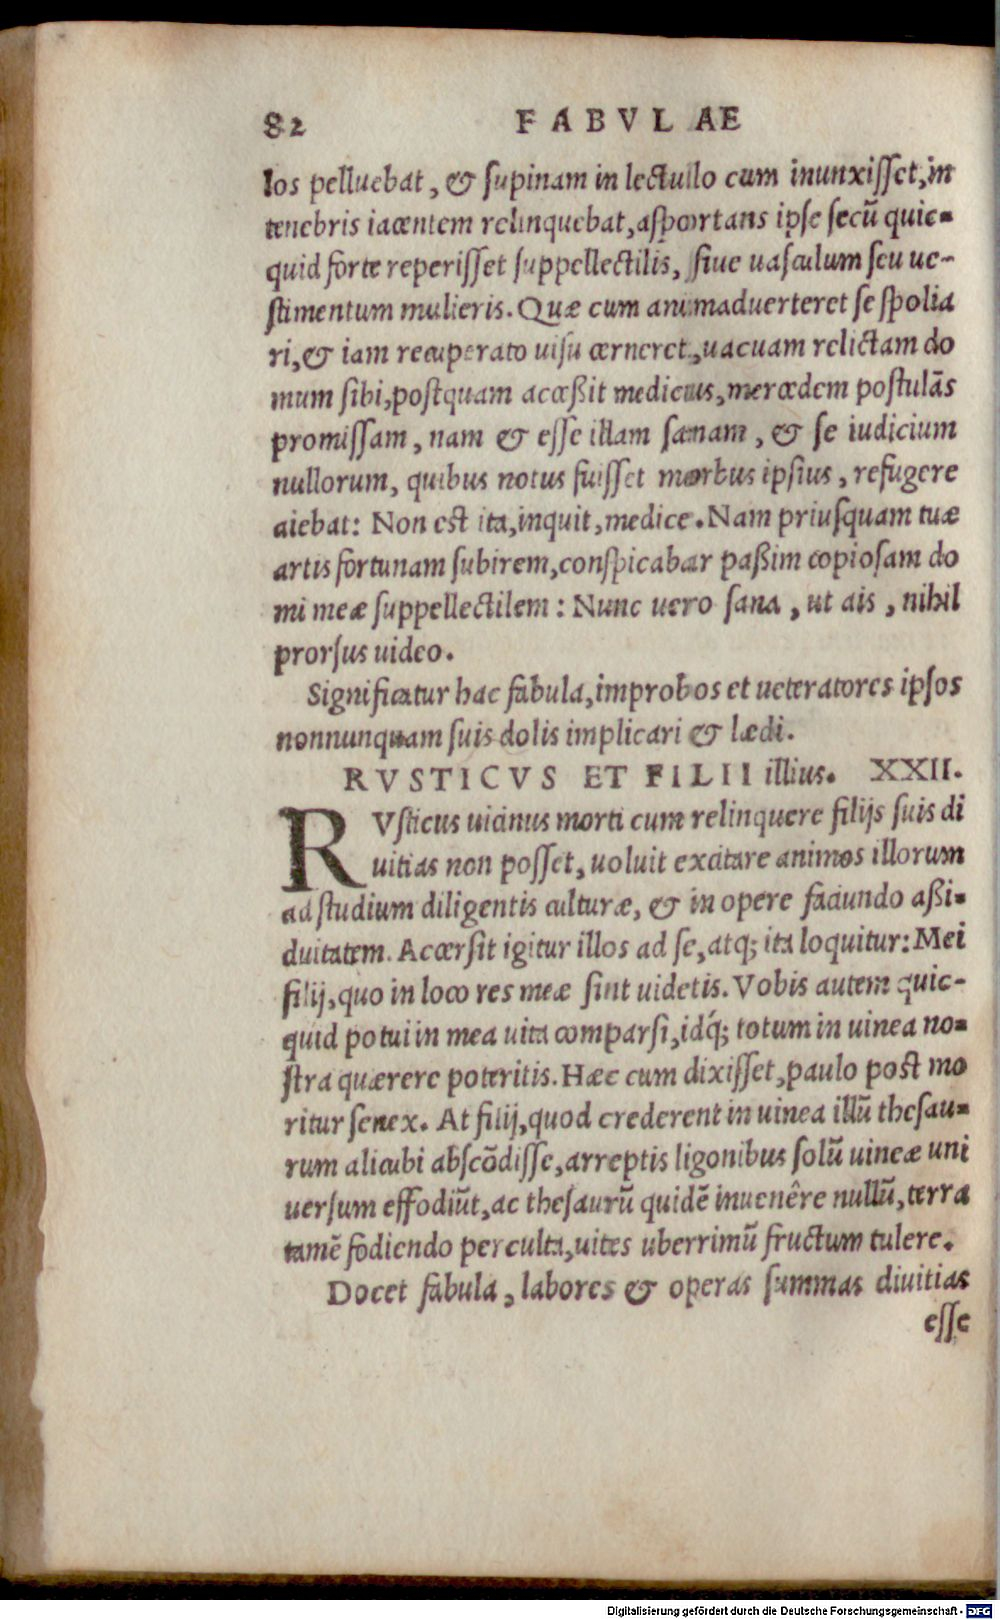 82 FABVLAE
los pelluebat, & supinam in lectulo cum inunxisset, in
tenebris iacentem relinquebat, asportans ipse secū quic=
quid forte reperisset suppellectilis, siue uasculum seu ue-
stimentum mulieris. Quæ cum animaduerteret se spolia
ri, & iam recuperato uisu cerneret, uacuam relictam do
mum sibi, postquam acceßit medicus, mercedem postulās
promissam, nam & esse illam sanam, & se iudicium
nullorum, quibus notus fuisset morbus ipsius, refugere
aiebat: Non est ita, inquit, medice. Nam priusquam tuæ
artis fortunam subirem, conspicabar paßim copiosam do
mi meæ suppellectilem: Nunc uero sana, ut ais, nihil
prorsus uideo.
Significatur hac fabula, improbos et ueteratores ipsos
nonnunquam suis dolis implicari & lædi.
RVSTICVS ET FILII illius. XXII.
RVsticus uicinus morti cum relinquere filijs suis di
uitias non posset, uoluit excitare animos illorum
ad studium diligentis culturæ, & in opere faciundo aßi=
duitatem. Accersit igitur illos ad se, atq; ita loquitur: Mei
filij, quo in loco res meæ sint uidetis. Vobis autem quic-
quid potui in mea uita comparsi, idq́; totum in uinea no=
stra quærere poteritis. Hæc cum dixisset, paulo post mo
ritur senex. At filij, quod crederent in uinea illū thesau=
rum alicubi abscōdisse, arreptis ligonibus solū uineæ uni
uersum effodiūt, ac thesaurū quidē inuenêre nullū, terra
tamē fodiendo perculta, uites uberrimū fructum tulere.
Docet fabula, labores & operas summas diuitias
esse
Digitalisierung gefördert durch die Deutsche Forschungsgemeinschaft - DFG